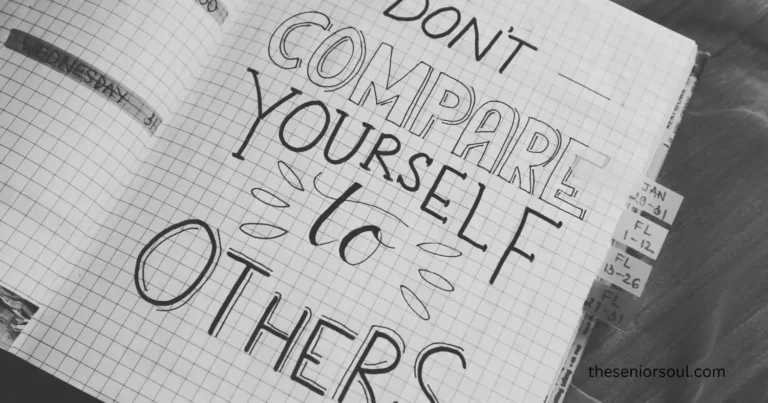 WEDNESDAY 31
DON'T
COMPARE
YOURSELF
to
OTHERS
JAN
28-31
FL
1-12
FL
13-26
FL
27-31
theseniorsoul.com